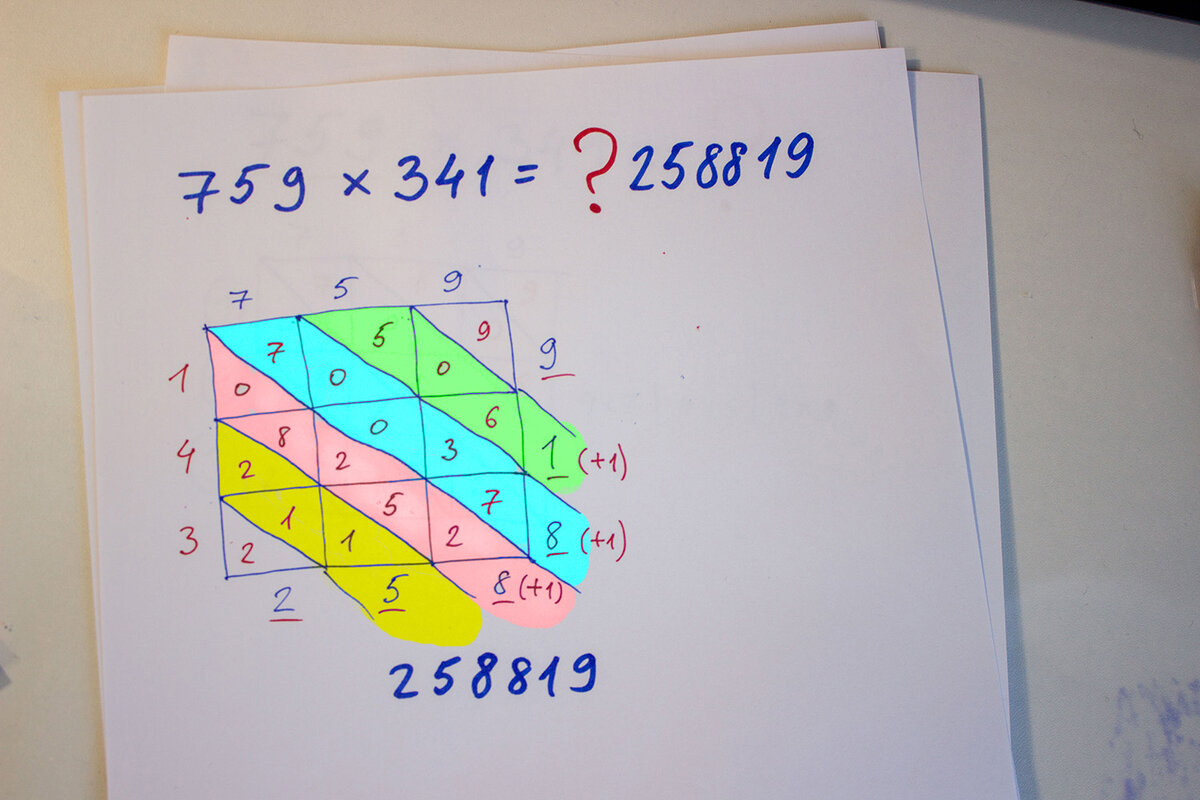 759 × 341 = ? 258819
7 5 9
7 5 9
1 0 0 0 9
8 0 6
4 2 2 3 1 (+1)
1 5 7
3 2 1 2 8 (+1)
2 5 8 (+1)
258819